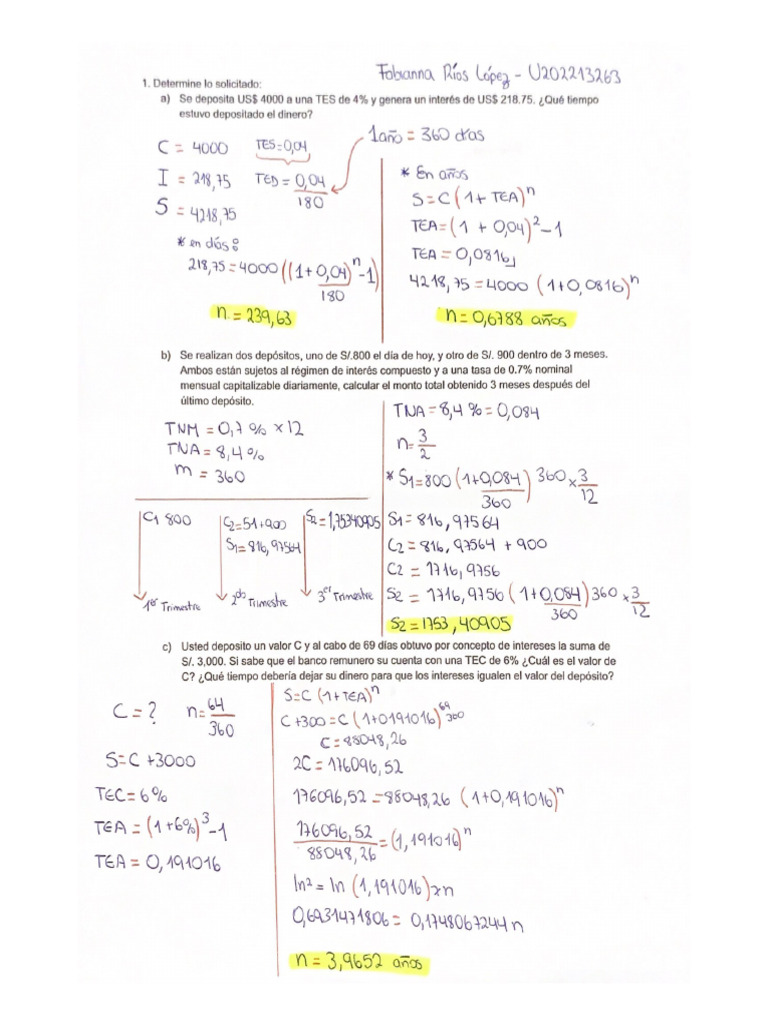 Fabianna Ríos López - U202213263
1. Determine lo solicitado:
a) Se deposita US$ 4000 a una TES de 4% y genera un interés de US$ 218.75. ¿Qué tiempo
estuvo depositado el dinero?
C = 4000
TES=0,04
1 año = 360 días
I = 218,75
TED = 0,04/180
S = 4218,75
* en días:
218,75 = 4000 ((1 + 0,04/180)^n - 1)
n = 239,63
* En años
S = C (1 + TEA)^n
TEA = (1 + 0,04)^2 - 1
TEA = 0,0816
4218,75 = 4000 (1+0,0816)^n
n = 0,6788 años
b) Se realizan dos depósitos, uno de S/.800 el día de hoy, y otro de S/. 900 dentro de 3 meses.
Ambos están sujetos al régimen de interés compuesto y a una tasa de 0.7% nominal
mensual capitalizable diariamente, calcular el monto total obtenido 3 meses después del
último depósito.
TNM = 0,7 % x12
TNA = 8,4%
m = 360
C1 800
C2=S1+900
S1=816,97564
S2=1,75340905
1er Trimestre
2do Trimestre
3er Trimestre
TNA = 8,4 % = 0,084
n= 3/2
* S1=800 (1+0,084/360) 360 x 3/12
S1=816,97564
C2 = 816,97564 + 900
C2 = 1716,9756
S2 = 1716,9756 (1+0,084/360) 360 x 3/12
S2 = 1753,40905
c) Usted deposito un valor C y al cabo de 69 días obtuvo por concepto de intereses la suma de
S/. 3,000. Si sabe que el banco remunero su cuenta con una TEC de 6% ¿Cuál es el valor de
C? ¿Qué tiempo debería dejar su dinero para que los intereses igualen el valor del depósito?
C = ? n= 64/360
S=C +3000
TEC = 6%
TEA = (1+6%)^3 - 1
TEA = 0,191016
S=C (1+TEA)^n
C+300=C (1+0191016)^69/360
C=88048,26
2C = 176096,52
176096,52 =88048,26 (1+0,191016)^n
176096,52/88048,26 = (1,191016)^n
ln2 = ln (1,191016) x n
0,6931471806 = 0,1748067244 n
n = 3,9652 años